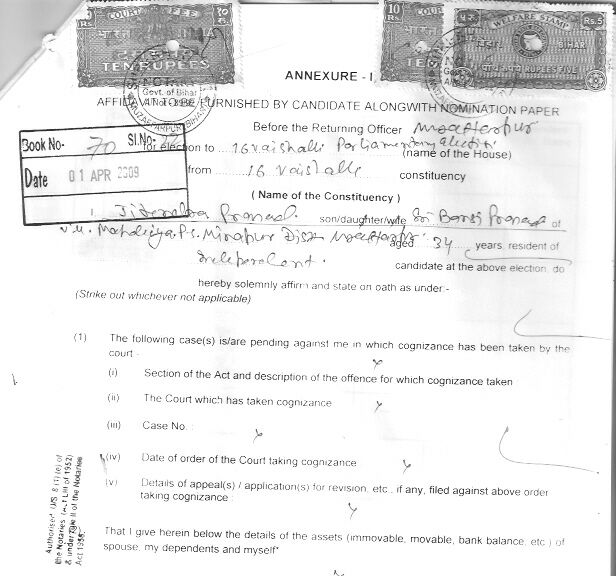 COURT FEE
TEN RUPEES
10 Rs
WELFARE STAMP
BIHAR
Rs.5
पाँच रुपये RUPEES FIVE
Govt. of Bihar
MUZAFFARPUR (BIHAR)
ANNEXURE - I
AFFIDAVIT TO BE FURNISHED BY CANDIDATE ALONGWITH NOMINATION PAPER
Before the Returning Officer Muzaffarpur
Book No- 70 Sl.No-
for election to 16 Vaishali Parliamentary election
(name of the House)
Date 01 APR 2009
from 16 Vaishali constituency
( Name of the Constituency )
I Jitendra Prasad son/daughter/wife Sri Bansi Prasad of
P.S. Minapur Muzaffarpur aged 34 years, resident of
Independent. candidate at the above election, do
hereby solemnly affirm and state on oath as under:-
(Strike out whichever not applicable)
(1) The following case(s) is/are pending against me in which cognizance has been taken by the
court:-
(i) Section of the Act and description of the offence for which cognizance taken
(ii) The Court which has taken cognizance
(iii) Case No.
(iv) Date of order of the Court taking cognizance
(v) Details of appeal(s) / application(s) for revision, etc., if any, filed against above order
taking cognizance
Authorised U/S 8 (1) (e) of
the Notaries (Act LIII of 1952)
& under II of the Notaries
Act 1956.
That I give herein below the details of the assets (immovable, movable, bank balance, etc.) of
spouse, my dependents and myself*